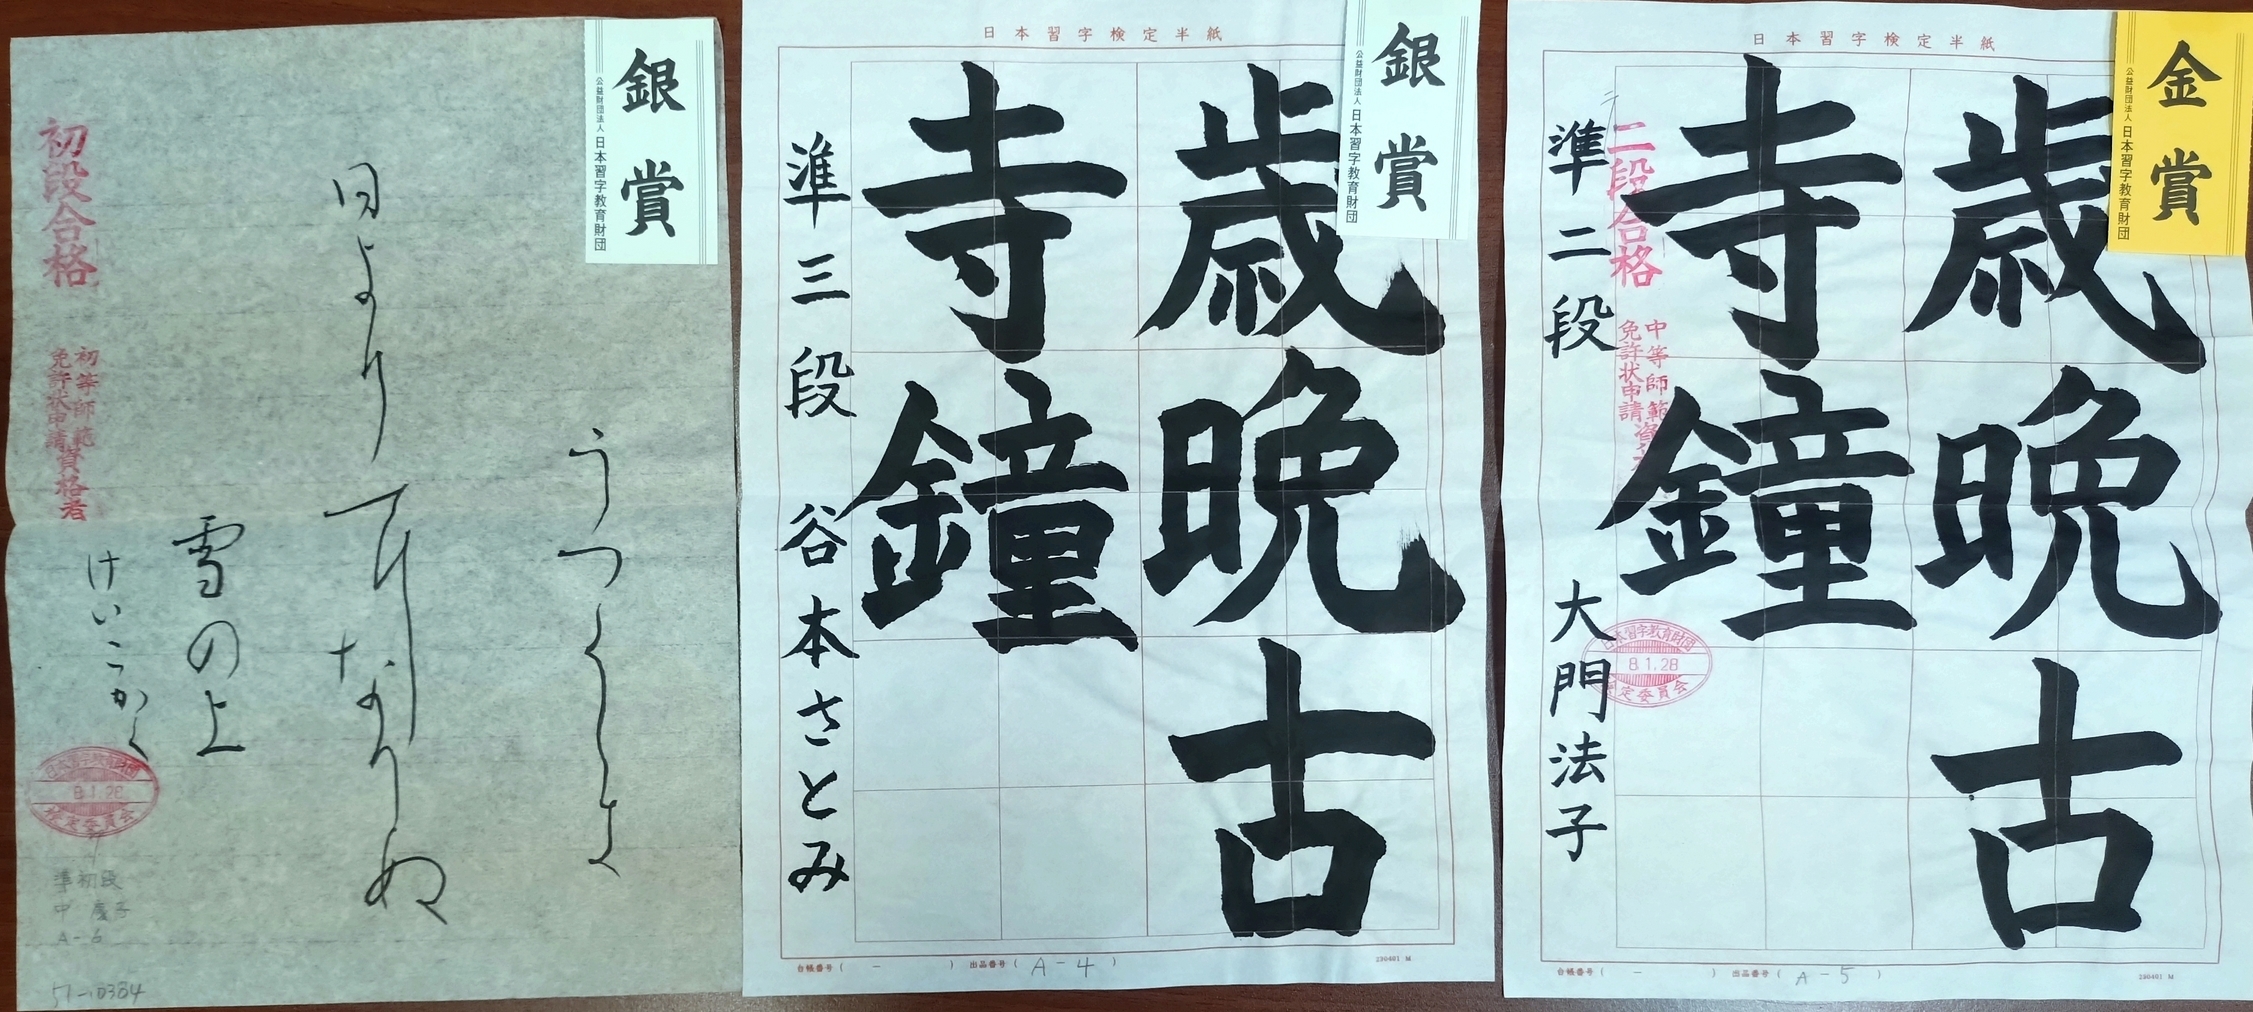 銀賞
公益財団法人 日本習字教育財団
うつくしき
日よりになりぬ
雪の上
けいこかく
初段合格
初等師範資格者
免許状申請
日本習字教育財団
8.1.28
検定委員会
準初段
中 慶子
A-6
51-10384
日本習字検定半紙
銀賞
公益財団法人 日本習字教育財団
歳晩古
寺鐘
準三段 谷本さとみ
台帳番号( - ) 出品番号( A-4 )
290401 M
日本習字検定半紙
金賞
公益財団法人 日本習字教育財団
歳晩古
寺鐘
準二段 大門法子
二段合格
中等師範資
免許状申請
日本習字教育財団
8.1.28
検定委員会
台帳番号( - ) 出品番号( A-5 )
290401 M